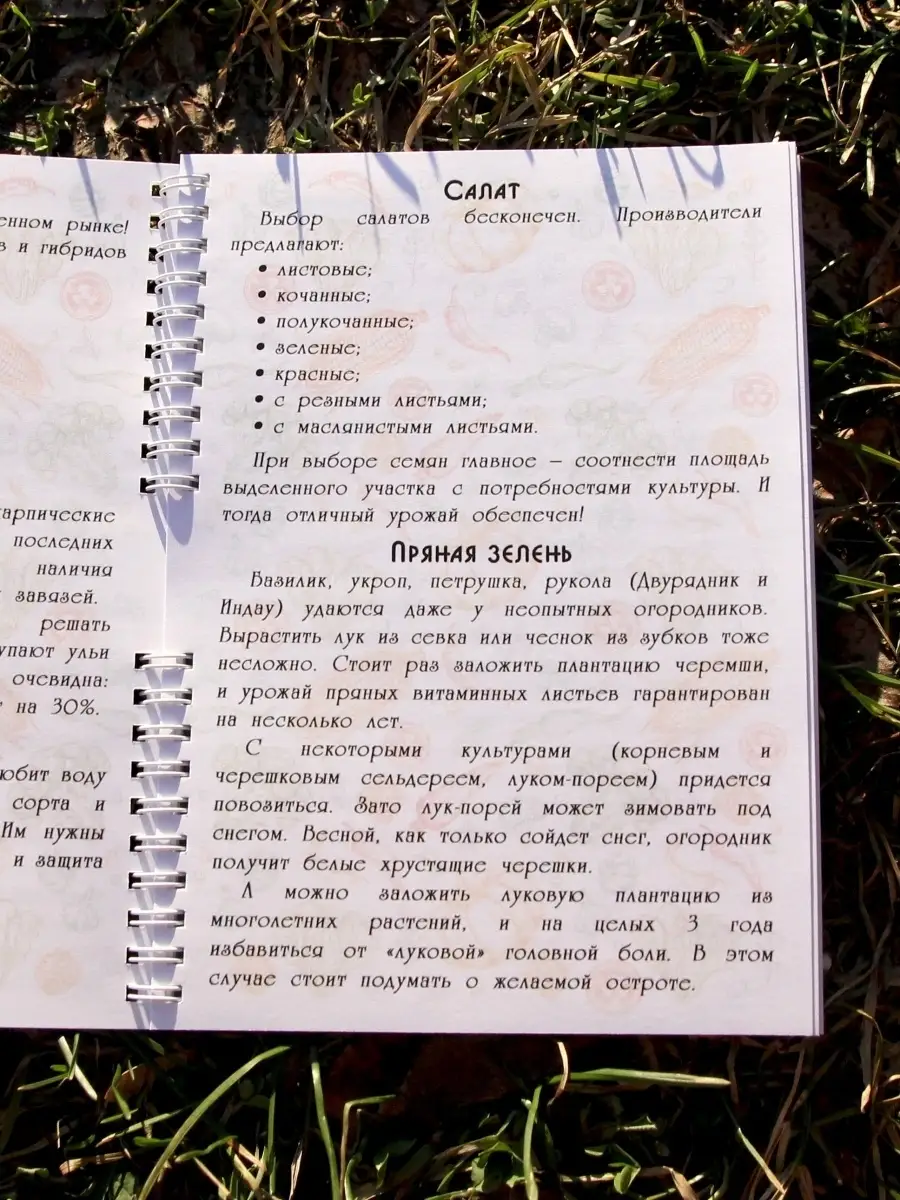 енном рынке!
в и гибридов
карпические
последних
наличия
завязей.
решать
упают ульи
очевидна:
на 30%.
юбит воду
сорта и
Им нужны
и защита
Салат
Выбор салатов бесконечен. Производители
предлагают:
• листовые;
• кочанные;
• полукочанные;
• зеленые;
• красные;
• с резными листьями;
• с маслянистыми листьями.
При выборе семян главное – соотнести площадь
выделенного участка с потребностями культуры. И
тогда отличный урожай обеспечен!
Пряная зелень
Базилик, укроп, петрушка, рукола (Двурядник и
Индау) удаются даже у неопытных огородников.
Вырастить лук из севка или чеснок из зубков тоже
несложно. Стоит раз заложить плантацию черемши,
и урожай пряных витаминных листьев гарантирован
на несколько лет.
С некоторыми культурами (корневым и
черешковым сельдереем, луком-пореем) придется
повозиться. Зато лук-порей может зимовать под
снегом. Весной, как только сойдет снег, огородник
получит белые хрустящие черешки.
А можно заложить луковую плантацию из
многолетних растений, и на целых 3 года
избавиться от «луковой» головной боли. В этом
случае стоит подумать о желаемой остроте.